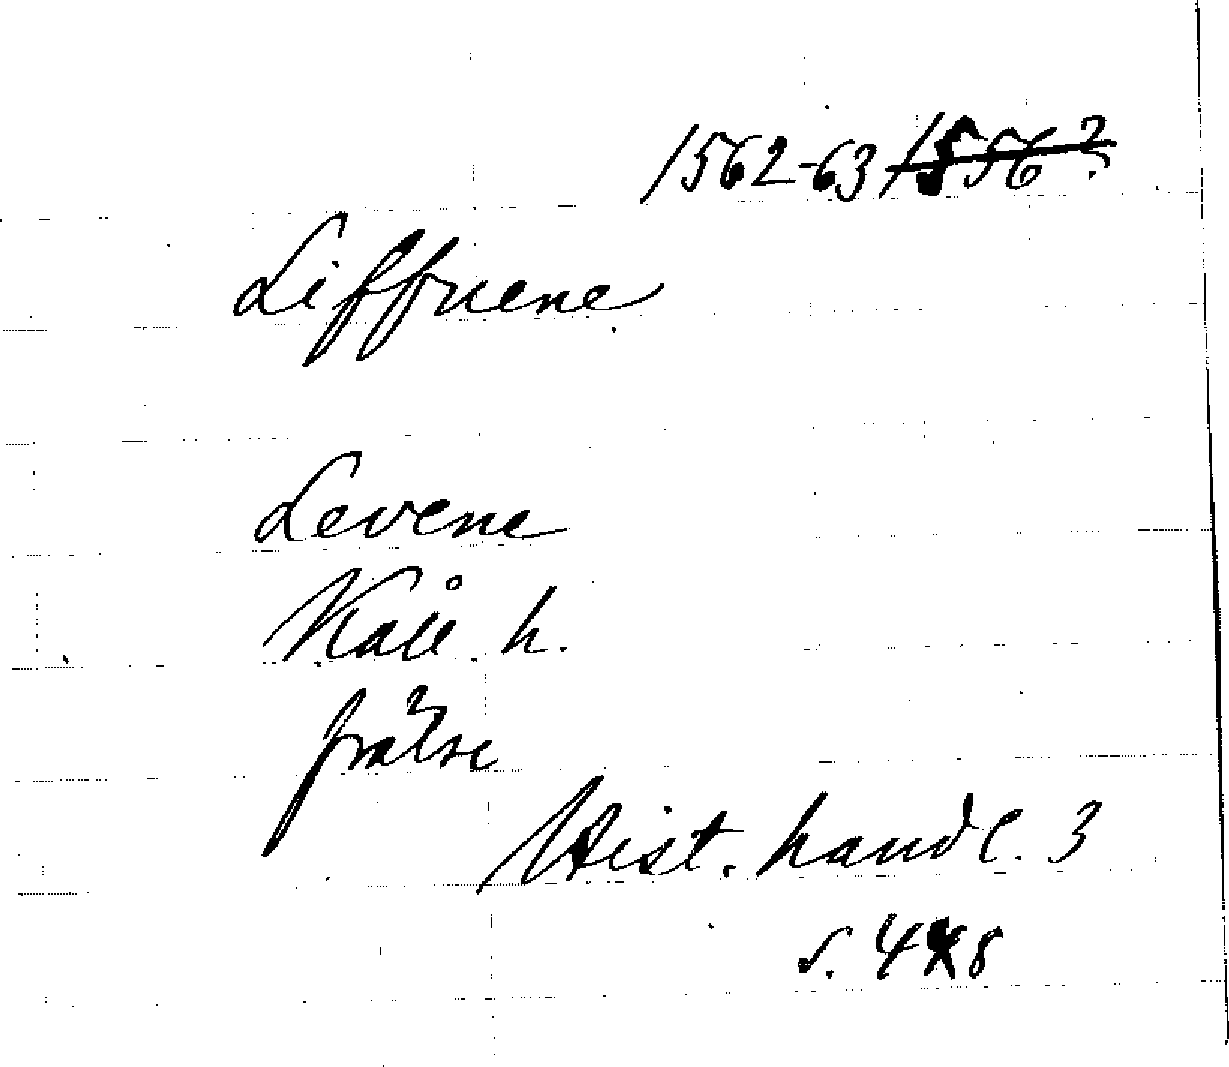 1562-63 1556?
Liffuene
Levene
Kålle h.
frälse
Hist. handl. 3
s. 448